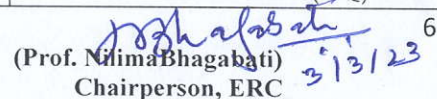 NBhagabati 6
(Prof. NilimaBhagabati)
3/3/23
Chairperson, ERC